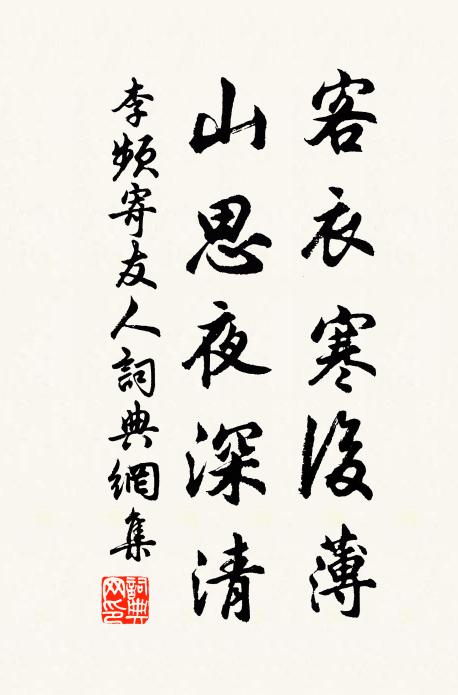 客衣寒後薄
山思夜深清
李頻寄友人詞典網集
詞典网印